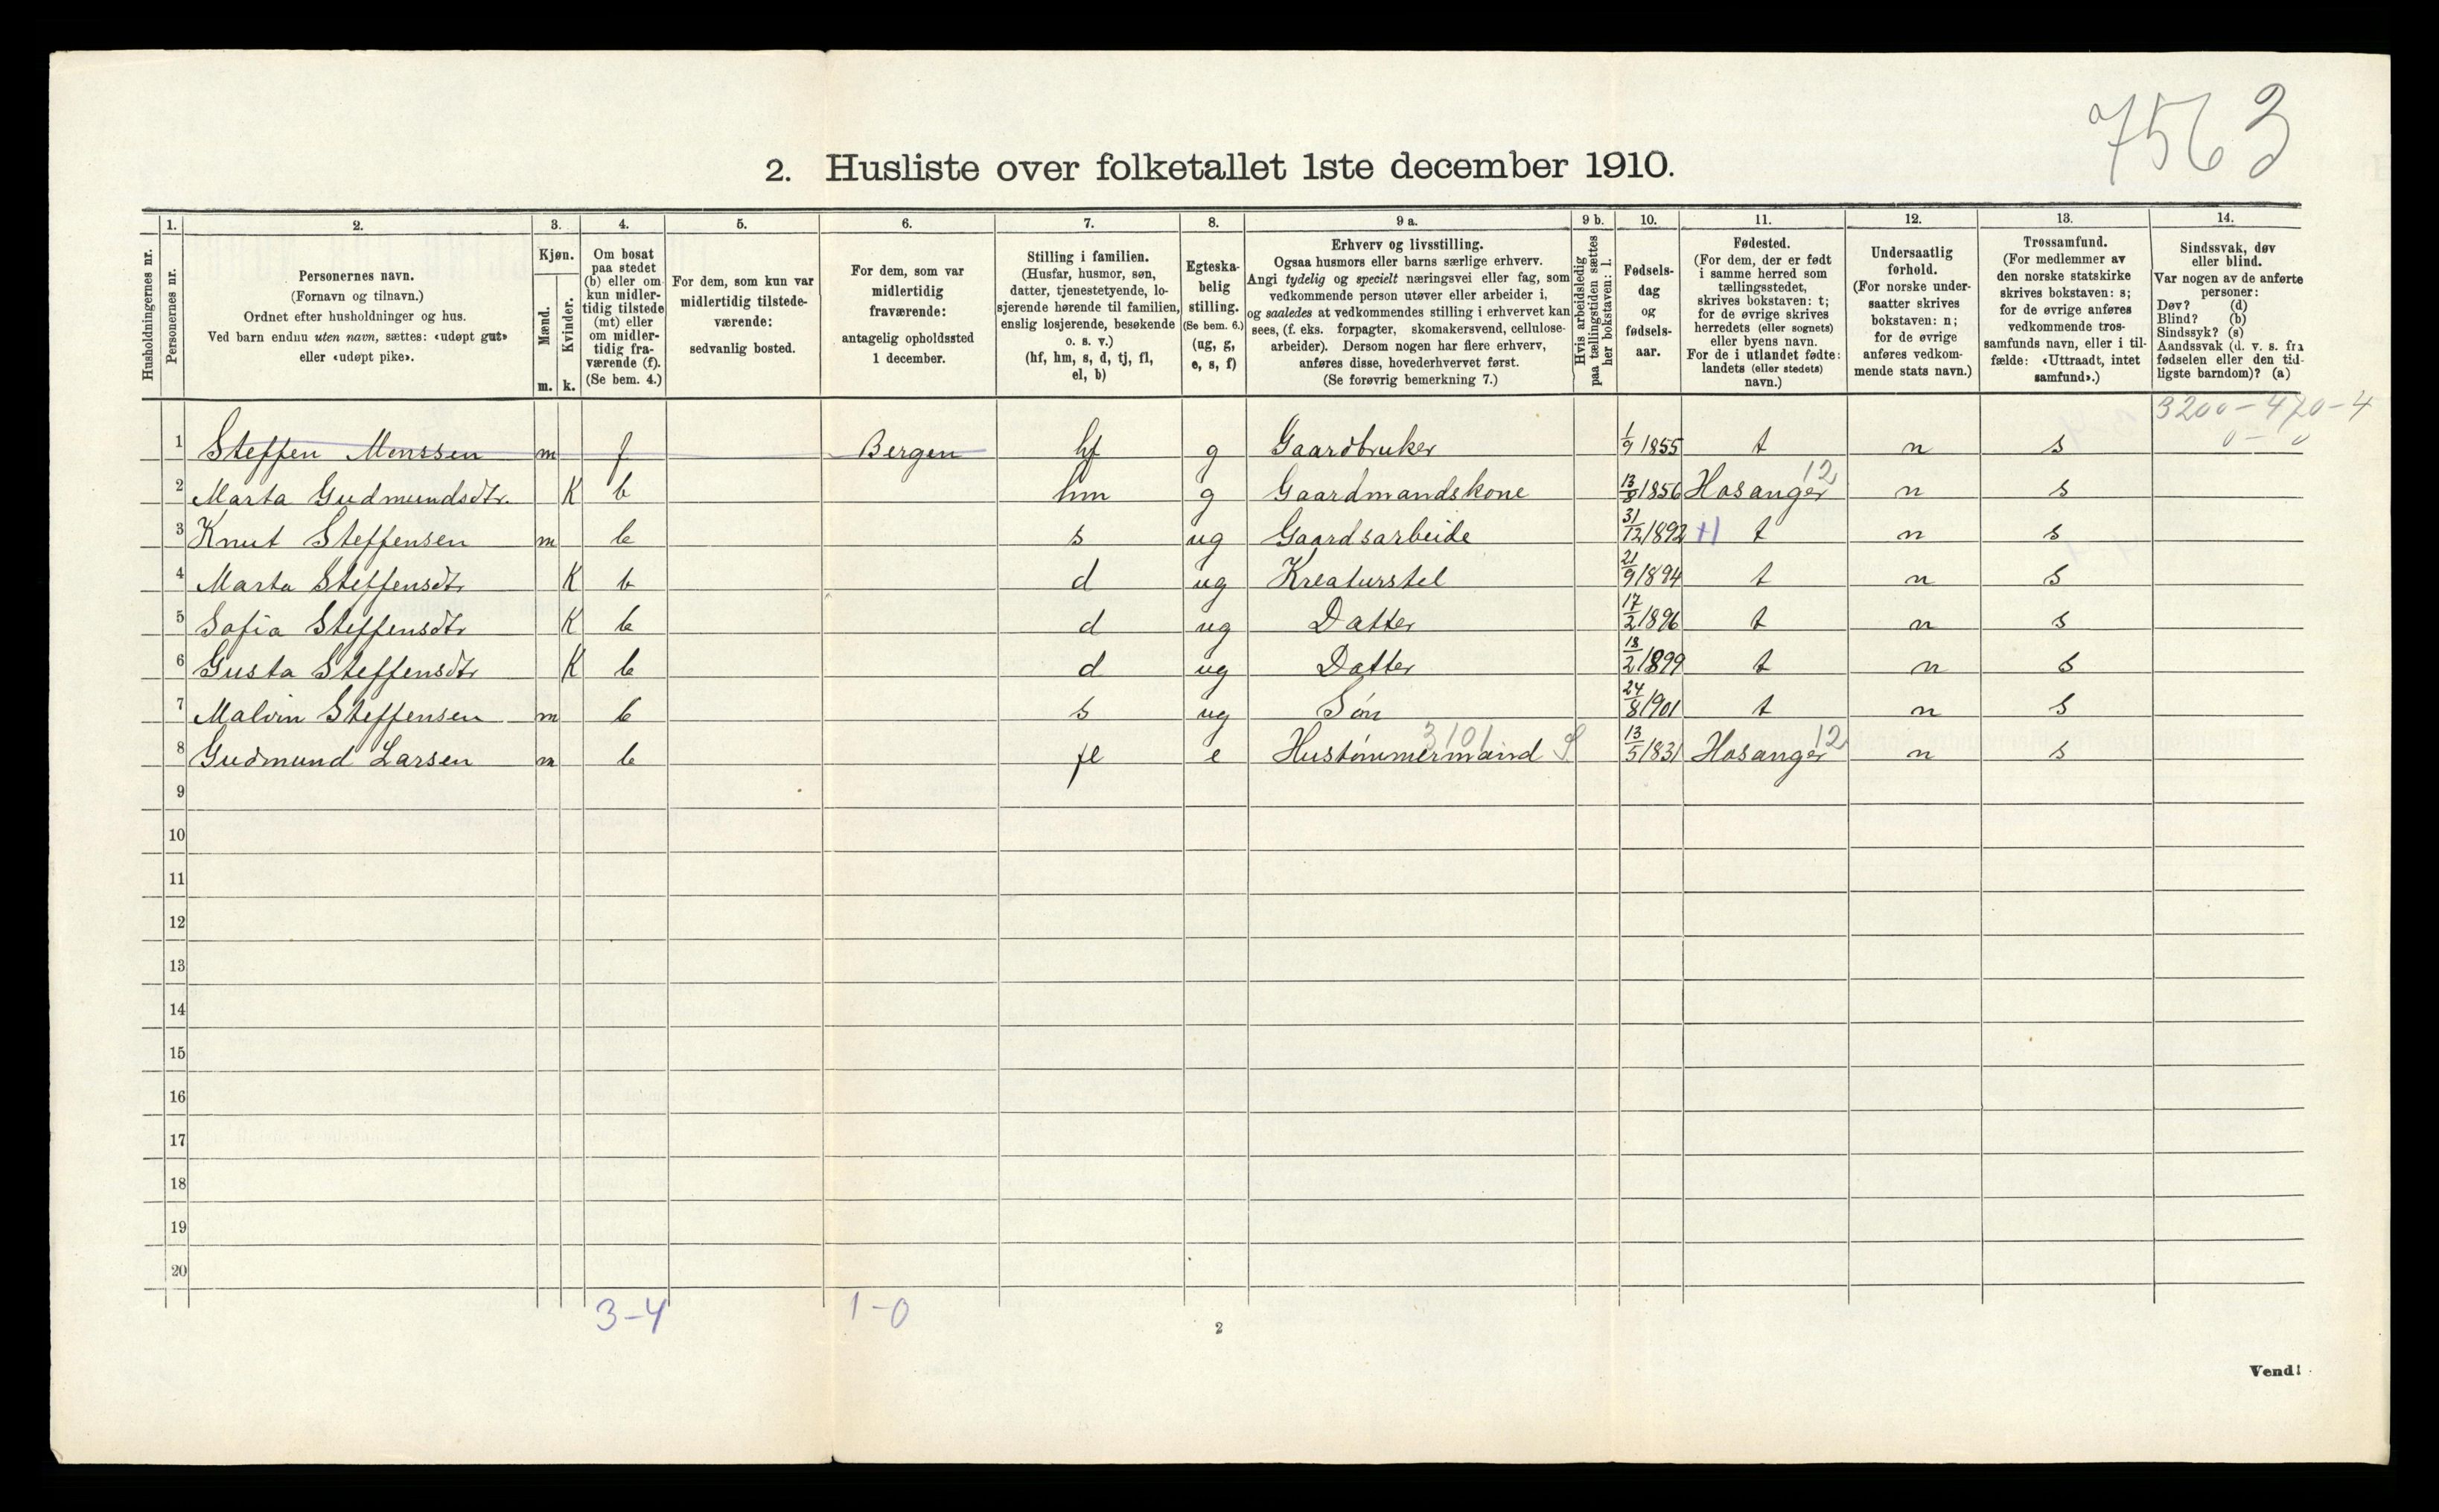 7563
2. Husliste over folketallet 1ste december 1910.
1. 2. 3. 4. 5. 6. 7. 8. 9 a. 9 b. 10. 11. 12. 13. 14.
Husholdningernes nr.
Personernes nr.
Personernes navn.
(Fornavn og tilnavn.)
Ordnet efter husholdninger og hus.
Ved barn endnu uten navn, sættes: «udøpt gut»
eller «udøpt pike».
Kjøn.
Mænd.
Kvinder.
m. k.
Om bosat
paa stedet
(b) eller om
kun midler-
tidig tilstede
(mt) eller
om midler-
tidig fra-
værende (f).
(Se bem. 4.)
For dem, som kun var
midlertidig tilstede-
værende:
sedvanlig bosted.
For dem, som var
midlertidig
fraværende:
antagelig opholdssted
1 december.
Stilling i familien.
(Husfar, husmor, søn,
datter, tjenestetyende, lo-
sjerende hørende til familien,
enslig losjerende, besøkende
o. s. v.)
(hf, hm, s, d, tj, fl,
el, b)
Egteska-
belig
stilling.
(Se bem. 6.)
(ug, g,
e, s, f)
Erhverv og livsstilling.
Ogsaa husmors eller barns særlige erhverv.
Angi tydelig og specielt næringsvei eller fag, som
vedkommende person utøver eller arbeider i,
og saaledes at vedkommendes stilling i erhvervet kan
sees, (f. eks. forpagter, skomakersvend, cellulose-
arbeider). Dersom nogen har flere erhverv,
anføres disse, hovederhvervet først.
(Se forøvrig bemerkning 7.)
Hvis arbeidsledig
paa tællingstiden sættes
her bokstaven: l.
Fødsels-
dag
og
fødsels-
aar.
Fødested.
(For dem, der er født
i samme herred som
tællingsstedet,
skrives bokstaven: t;
for de øvrige skrives
herredets (eller sognets)
eller byens navn.
For de i utlandet fødte:
landets (eller stedets)
navn.)
Undersaatlig
forhold.
(For norske under-
saatter skrives
bokstaven: n;
for de øvrige
anføres vedkom-
mende stats navn.)
Trossamfund.
(For medlemmer av
den norske statskirke
skrives bokstaven: s;
for de øvrige anføres
vedkommende tros-
samfunds navn, eller i til-
fælde: «Uttraadt, intet
samfund».)
Sindssvak, døv
eller blind.
Var nogen av de anførte
personer:
Døv? (d)
Blind? (b)
Sindssyk? (s)
Aandssvak (d. v. s. fra
fødselen eller den tid-
ligste barndom)? (a)
3200-470-4
0-0
1 Steffen Monssen m f Bergen hf g Gaardbruker 1/9 1855 t n s
2 Marta Gudmundsdtr. K b hm g Gaardmandskone 13/8 1856 Hosanger 12 n s
3 Knut Steffensen m b s ug Gaardsarbeide 31/12 1892 t n s
4 Marta Steffensdtr K b d ug Kreaturstel 21/9 1894 t n s
5 Sofia Steffensdtr K b d ug Datter 17/2 1896 t n s
6 Gusta Steffensdtr K b d ug Datter 18/2 1899 t n s
7 Malvin Steffensen m b s ug Søn 24/8 1901 t n s
8 Gudmund Larsen m b fl e Hustømmermand 3101 S 13/5 1831 Hosanger 12 n s
9
10
11
12
13
14
15
16
17
18
19
20
3-4 1-0
2
Vend!